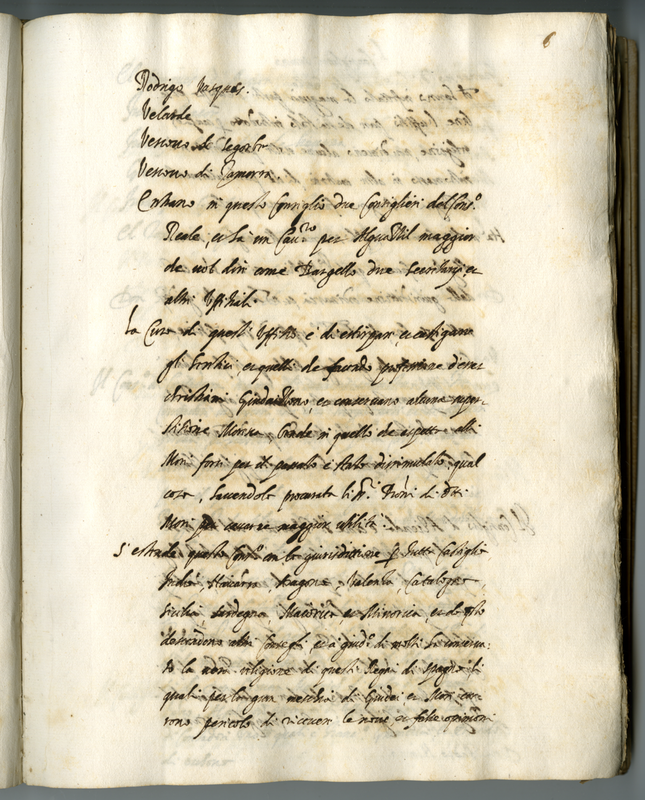 6
Rodrigo Vasques.
Velarde
Vescovo di Segorbe
Vescovo di Zamorra.
Entrano in questo Consiglio due Consiglieri del Cons.º
Reale, et hà un Cau.ro per Alguazil maggior
che vol dir come Bargello due Secretarij, et
altri Uffitiali.
La Cura di questi Uffitio è di estirpar, et castigare
gl'heretici, et quelli che facendo professione d'esser
christiani Giudaizzono, et conservano alcuna super-
stitione Moresca, benche in quello che aspetta alli
Mori forsi per il passato è stato dissimulato qual
cosa, havendolo procurato li SS.ri Proni di d.tti
Mori per cavarne maggior utilità
S'estende questo Cons.º con la giurisdittione per tutta Castiglia
Indie, Navarra Aragona, Valenza, Catalogna
Sicilia, Sardegna, Maiorica et Minorica, et da q.sto
descendono altri Consegli, et à giud.º di molti ha conserva-
to la vera religione di questi Regni di Spagna li
quali per la gran mischia di Giudei et Mori cor-
rono pericolo di ricever le nove et false opinioni